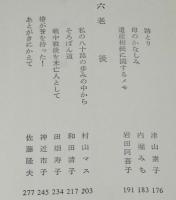 踏とり
母のかなしみ 津山素子 176
遺産相続に関するメモ 内堀みち 183
岩田阿喜子 191
六 老後
私の八十路の歩みの中から 村山マス 203
そろばん道 和田清子 217
戦中戦後を未亡人として 田畑寿子 234
椿が芽を持った! 神近市子 245
あとがきにかえて 佐藤隆夫 277